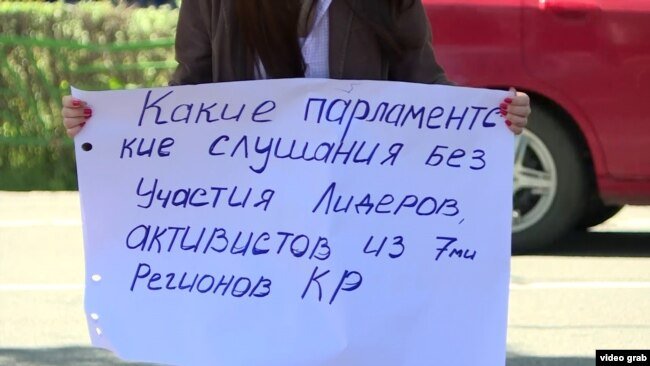 Какие парламентс
кие слушания без
участия Лидеров,
активистов из 7ми
Регионов КР
video grab